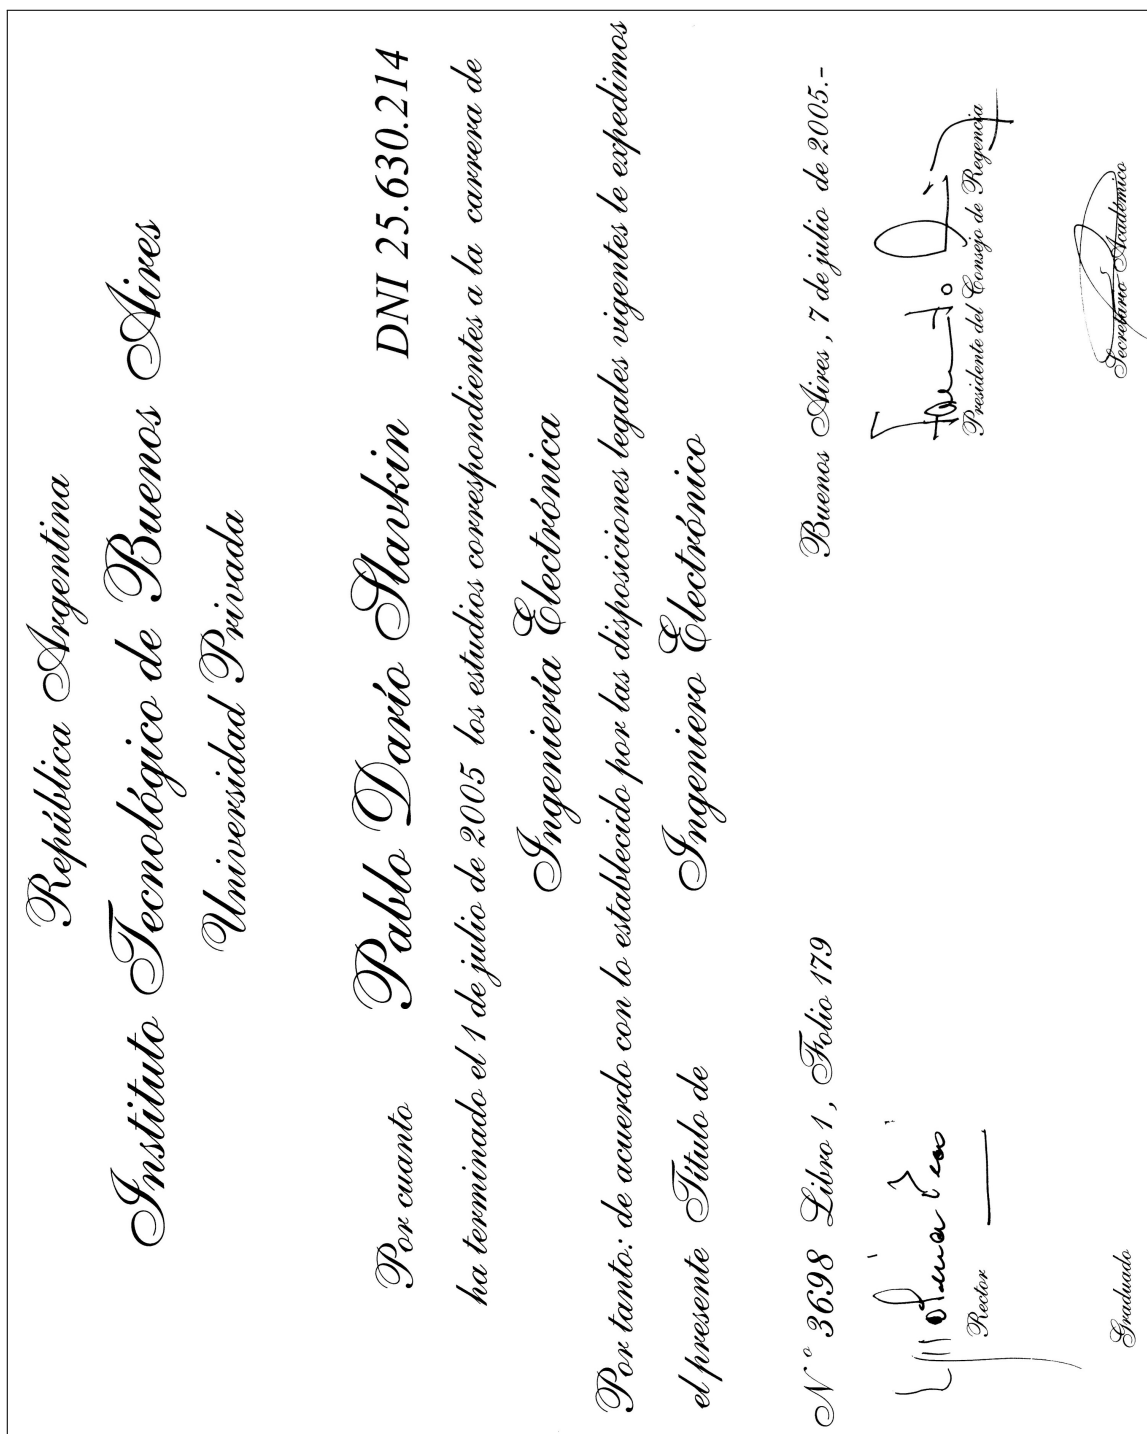 República Argentina
Instituto Tecnológico de Buenos Aires
Universidad Privada
Por cuanto Pablo Darío Slavkin DNI 25.630.214
ha terminado el 1 de julio de 2005 los estudios correspondientes a la carrera de
Ingeniería Electrónica
Por tanto: de acuerdo con lo establecido por las disposiciones legales vigentes le expedimos
el presente Título de Ingeniero Electrónico
Buenos Aires, 7 de julio de 2005.-
N° 3698 Libro 1, Folio 179
Rector
Presidente del Consejo de Regencia
Graduado
Secretario Académico